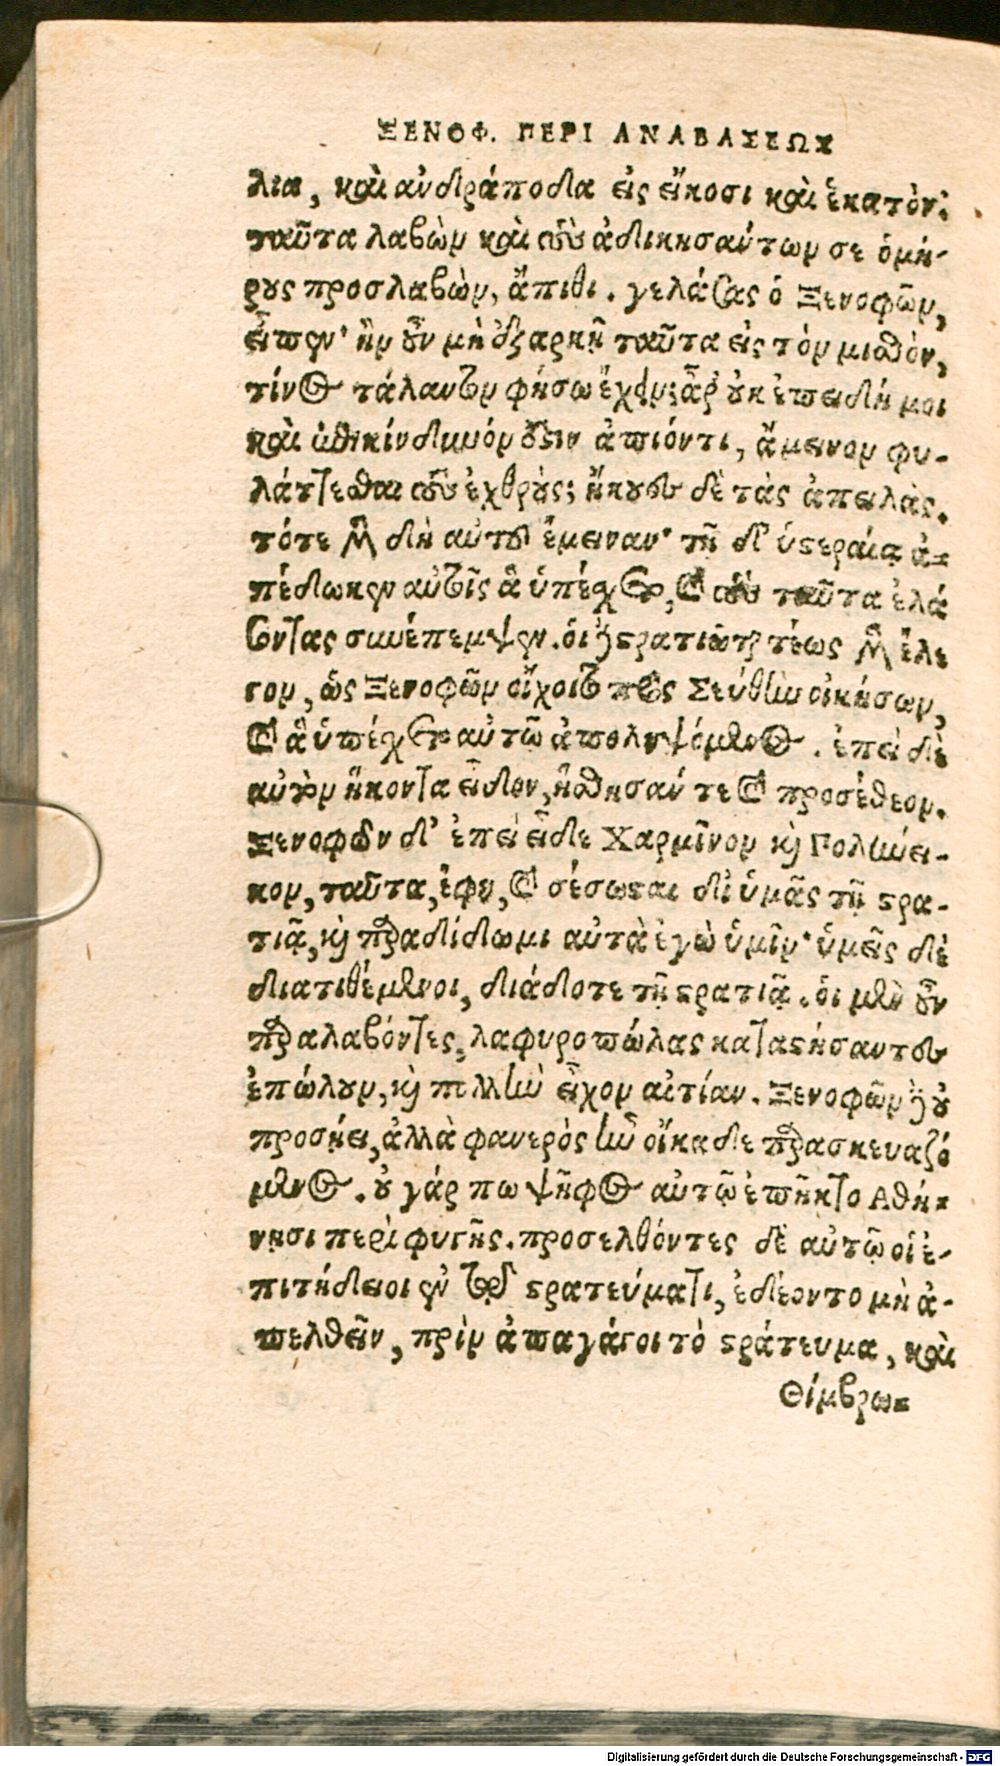 ΞΕΝΟΦ. ΠΕΡΙ ΑΝΑΒΑΣΕΩΣ
λια, καὶ ανδράποδα εἰς εἴκοσι καὶ ἑκατόν·
ταῦτα λαβὼν καὶ τοὺς ἀδικησαύτων σε ὁμή-
ρους προσλαβὼν, ἄπιθι. γελάσας ὁ Ξενοφῶν,
εἶπεν· ἢν οὖν μὴ ἐξαρκῇ ταῦτα εἰς τὸν μισθὸν,
τίνος τάλαντον φήσω ἔχειν; ἆρ' οὐκ ἐπειδή μοι
καὶ ἐπικίνδυνόν ἐστιν ἀπιόντι, ἄμεινον φυ-
λάττεσθαι τοὺς ἐχθρούς; ἤκουες δὲ τὰς ἀπειλάς.
τότε μὲν δὴ αὐτοῦ ἔμειναν· τῇ δ' ὑστεραίᾳ ἀ-
πέδωκεν αὐτοῖς ἃ ὑπέσχετο, καὶ τοὺς ταῦτα ἐλά
σοντας συνέπεμψεν. οἱ δὲ στρατιῶται τέως μὲν ἔλε
γον, ὡς Ξενοφῶν οἴχοιτο πρὸς Σεύθην οἰκήσων,
καὶ ἃ ὑπέσχετο αὐτῷ ἀποληψόμενος. ἐπεὶ δὲ
αὐτὸν ἥκοντα εἶδον, ἥσθησάν τε καὶ προσέθεον.
Ξενοφῶν δ' ἐπεὶ εἶδε Χαρμῖνον καὶ Πολύνει-
κον, ταῦτα, ἔφη, καὶ σέσωσται δι' ὑμᾶς τῇ στρα-
τιᾷ, καὶ παραδίδωμι αὐτὰ ἐγὼ ὑμῖν· ὑμεῖς δὲ
διατιθέμενοι, διάδοτε τῇ στρατιᾷ. οἱ μὲν οὖν
παραλαβόντες, λαφυροπώλας καταστήσαντες
ἐπώλουν, καὶ πολλὴν εἶχον αἰτίαν. Ξενοφῶν δὲ οὐ
προσῄει, ἀλλὰ φανερὸς ἦν οἴκαδε παρασκευαζό
μενος. οὐ γάρ πω ψῆφος αὐτῷ ἐπῆκτο Αθή-
νησι περὶ φυγῆς. προσελθόντες δὲ αὐτῷ οἱ ἐ-
πιτήδειοι ἐν τῷ στρατεύματι, ἐδέοντο μὴ ἀ-
πελθεῖν, πρὶν ἀπαγάγοι τὸ στράτευμα, καὶ
Θίμβρω-
Digitalisierung gefördert durch die Deutsche Forschungsgemeinschaft - DFG